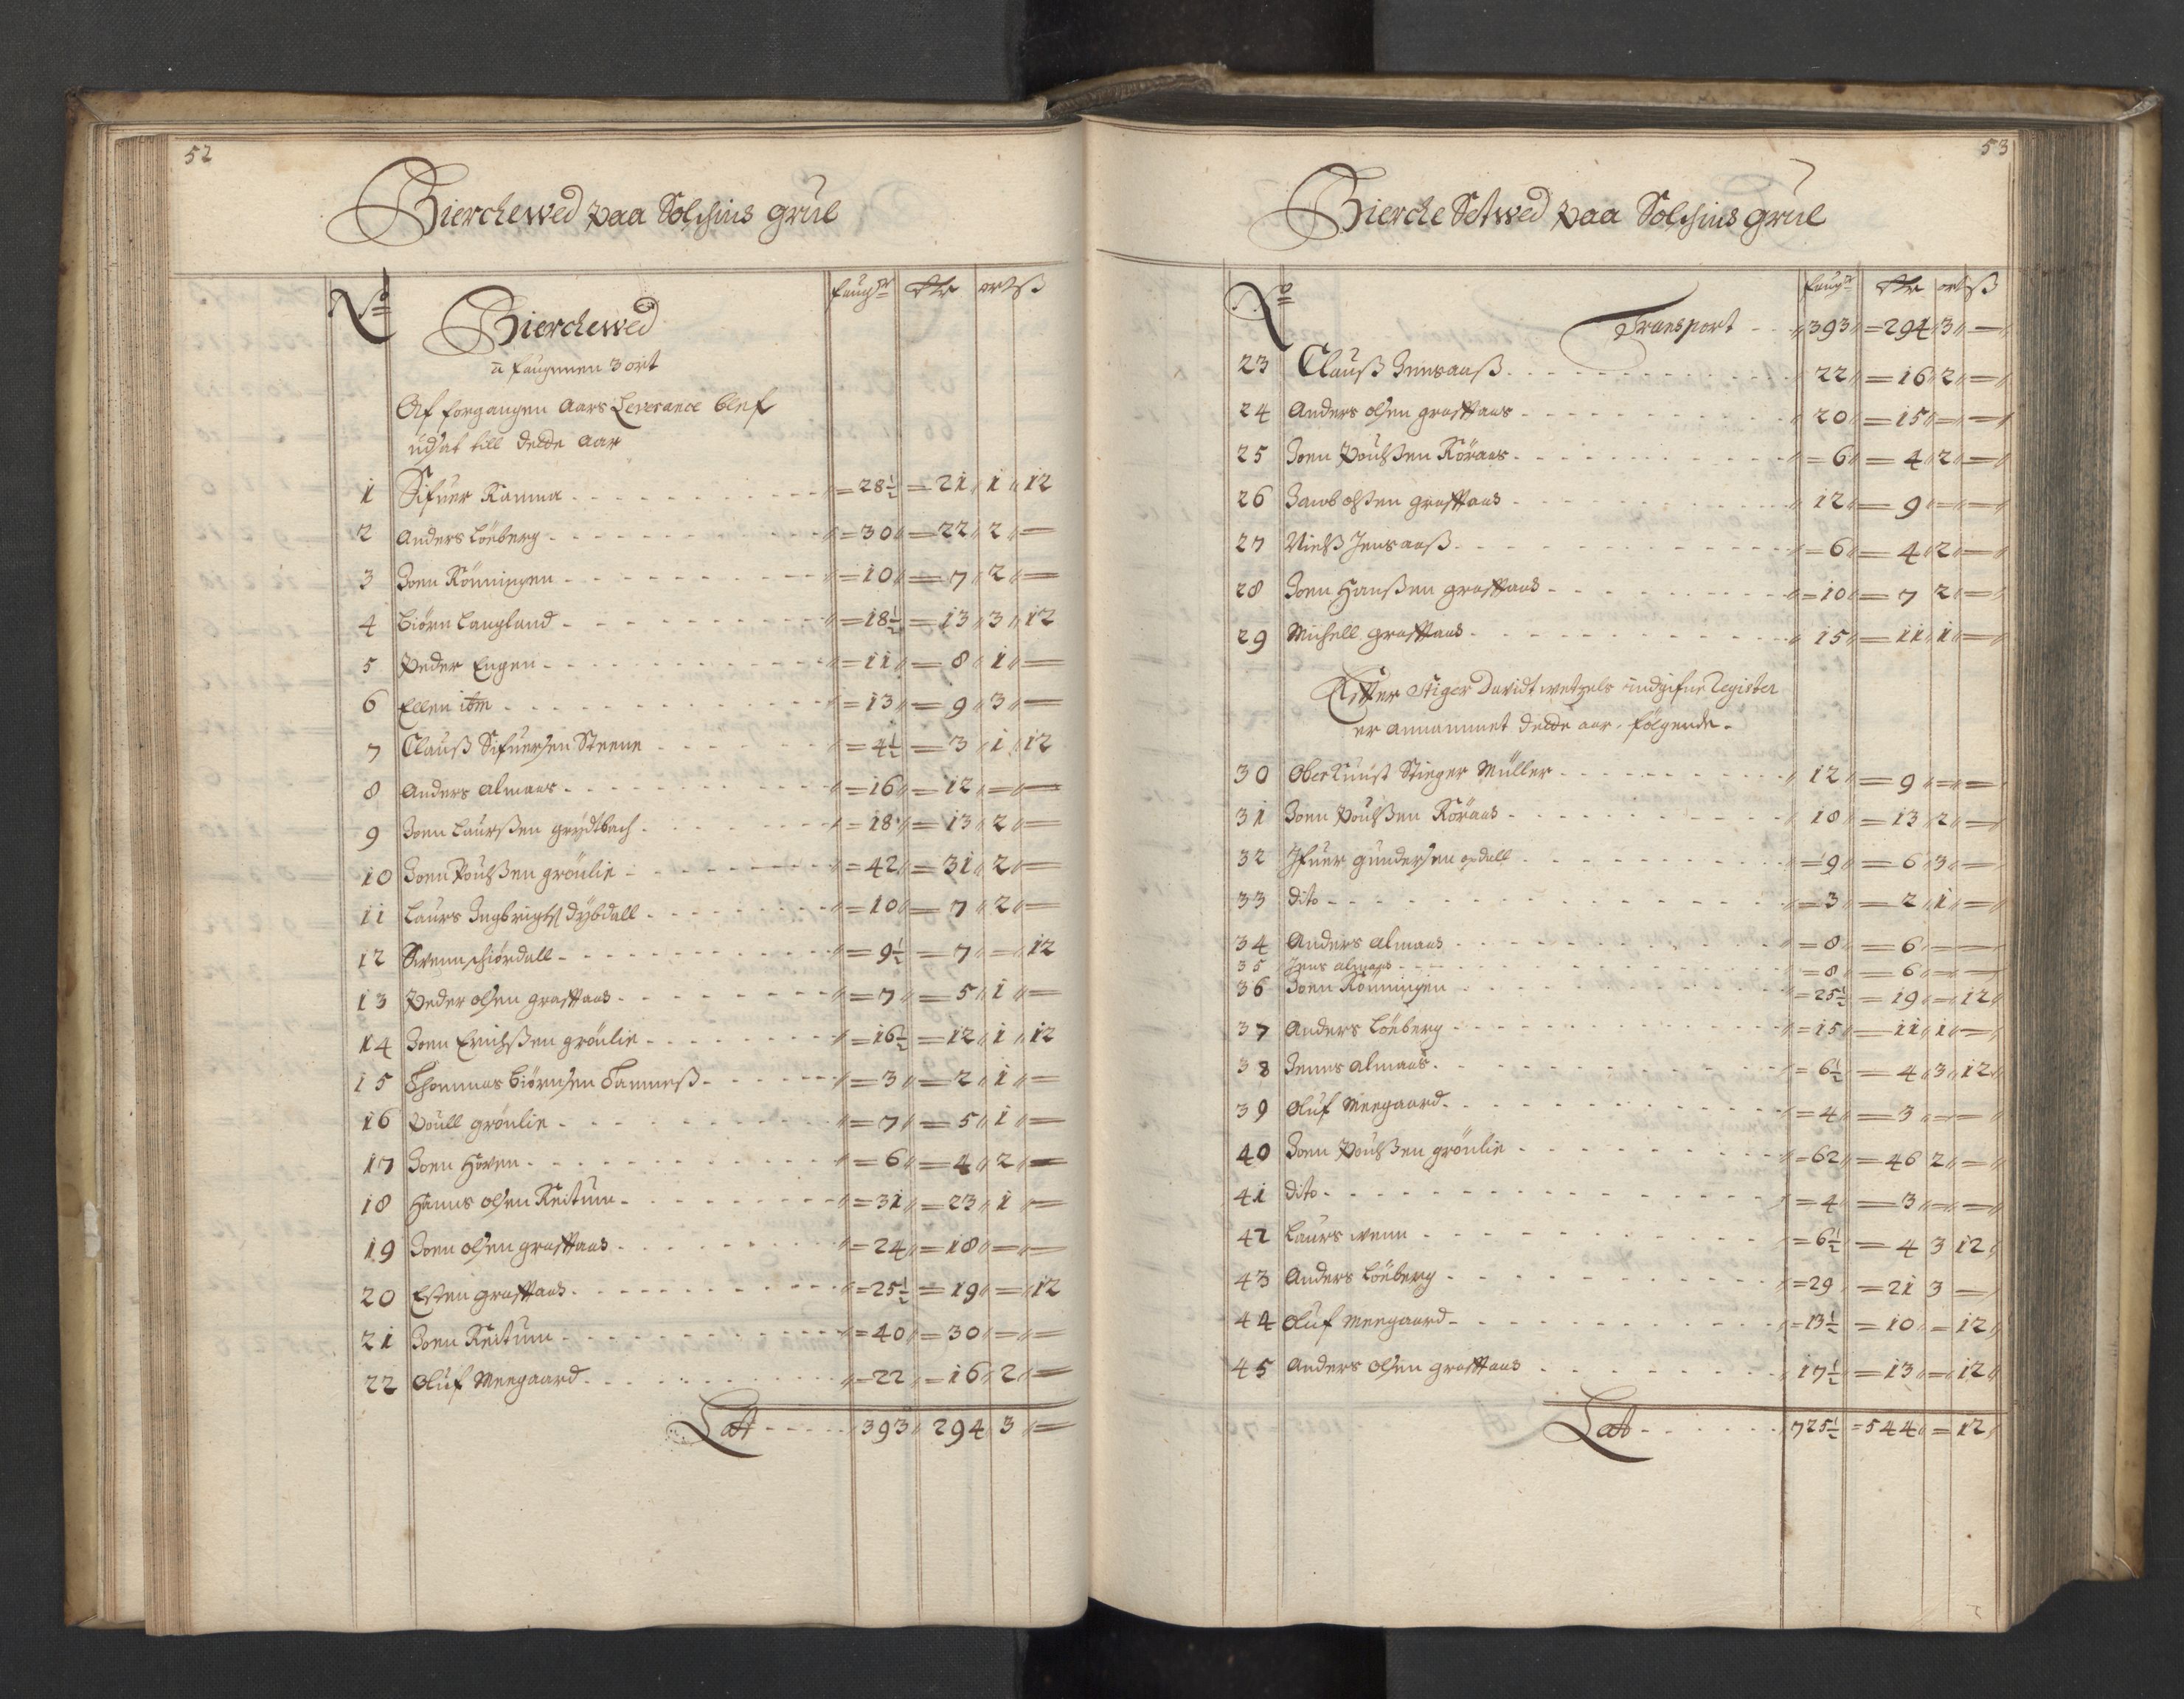 52
Bierckewed paa Solschins grué
No
faugr
Rdr
ort
ß
Bierckewed
a faugnnen 3 ort
Af forgangen Aars Leverance blef
udsat till dette Aar
1 Sifuer Kamma = 28½ = 21 1 12
2 Anders Löeberg = 30 = 22 2 =
3 Joen Rönningen = 10 = 7 2 =
4 Biörn Langland = 18½ = 13 3 12
5 Peder Engen = 11 = 8 1 =
6 Ellen itm = 13 = 9 3 =
7 Clauß Sifuersen Steene = 4½ = 3 1 12
8 Anders Almaas = 16 = 12 = =
9 Joen Laurßen grydtbach = 18 = 13 2 =
10 Joen Poulßen grönlie = 42 = 31 2 =
11 Laurs Ingbrigts dybdall = 10 = 7 2 =
12 Swenn schiördall = 9½ = 7 = 12
13 Peder olsen graffaas = 7 = 5 1 =
14 Joen Erichßen grönlie = 16½ = 12 1 12
15 Thommas Biörnsen Tamneß = 3 = 2 1 =
16 Poull grönlie = 7 = 5 1 =
17 Joen Hoven = 6 = 4 2 =
18 Hanns olsen Reitum = 31 = 23 1 =
19 Joen olsen graffaas = 24 = 18 = =
20 Esten graffaas = 25½ = 19 = 12
21 Joen Reitum = 40 = 30 = =
22 Oluf Meegaard = 22 = 16 2 =
Latt 393 294 3 =
53
Biercke Setwed paa Solschins grué
No
faugr
Rdr
ort
ß
Transport 393 = 294 3 =
23 Clauß Jensaaß 22 = 16 2 =
24 Anders olsen graffaas 20 = 15 = =
25 Joen Poulßen Röraas = 6 = 4 2 =
26 Jacob olßen graffaas 12 = 9 = =
27 Nielß Jensaaß = 6 = 4 2 =
28 Joen Hanßen graffaas = 10 = 7 2 =
29 Michell graffaas 15 = 11 1 =
Effter Stiger Davidt wetzels indgifne Register
er annammet dette aar, følgende.
30 Ober Kunst Stieger Müller 12 = 9 = =
31 Joen Poulßen Röraas 18 = 13 2 =
32 Ifuer gundersen opdall = 9 = 6 3 =
33 dito = 3 = 2 1 =
34 Anders Almaas = 8 = 6 = =
35 Jens almaas = 8 = 6 = =
36 Joen Rönningen = 25½ = 19 = 12
37 Anders Löeberg = 15 = 11 1 =
38 Jenns Almaas = 6½ = 4 3 12
39 Oluf Meegaard = 4 = 3 = =
40 Joen Poulßen grönlie = 62 = 46 2 =
41 dito = 4 = 3 = =
42 Laurs wenn = 6½ = 4 3 12
43 Anders Löeberg = 29 = 21 3 =
44 Oluf Meegaard = 13½ = 10 = 12
45 Anders olsen graffaas 17½ = 13 = 12
Latt 725½ = 544 = 12